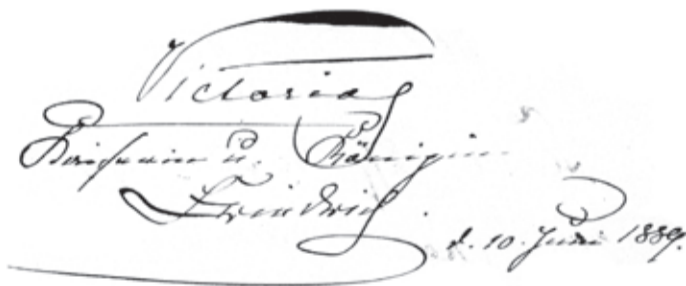 Victoria
Kaiserin u. Königin
Friedrich.
d. 10. Juni 1889.